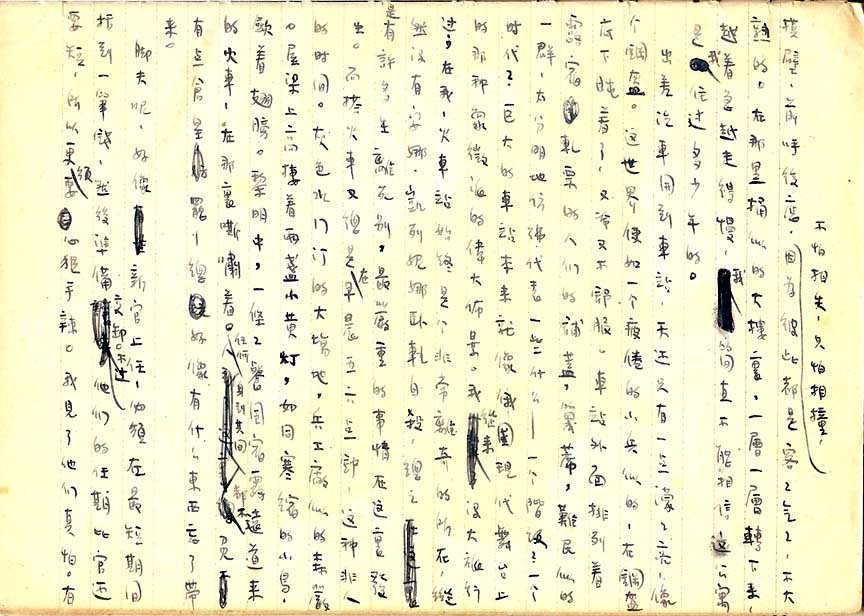 不怕相失，只怕相撞，
摸壁，前呼後應，因為彼此都是客客氣氣，不大
熟的。在那黑桶似的大樓裏，一層一層轉下來，
越着急越走得慢，我簡直不能相信這公寓
是我住過多少年的。
出差汽車開到車站，天还只有一点濛濛亮，像
個鋼盔。這世界便如一個疲倦的小兵似的，在鋼盔
底下盹着了，又冷又不舒服。車站外面排列着
露宿軋票的人們的鋪蓋，篾蓆，難民似的
一群，太分明地彷彿代表一些什么——一個階級？一個
時代？巨大的車站本來就像俄國現代舞台上
的那種象徵派的偉大佈景。我從來沒大旅行
過，在我，火車站始終是個非常離奇的所在，縱
然沒有安娜·凱列妮娜臥軋自殺，總之
是有許多生離死別，最嚴重的事情在這裏發
生。而搭火車又總是在早晨五六点鐘，這種非人
的時間。灰色水门汀的大場地，兵工廠似的森嚴
。屋梁上高棲着兩盞小黄灯，如同寒縮的小鳥，
歛着翅膀。黎明中，一條條餐風宿露遠道來
的火車，在那裏嘶嘯着。任何人身到其間都不免
有点倉皇罷——總好像有什么東西忘了帶
來。
脚夫呢，好像新官上任，必須在最短期間
括到一筆錢，然後準備交卸。不过他們的任期比官还
要短，所以更須要心狠手辣。我見了他們真怕。有